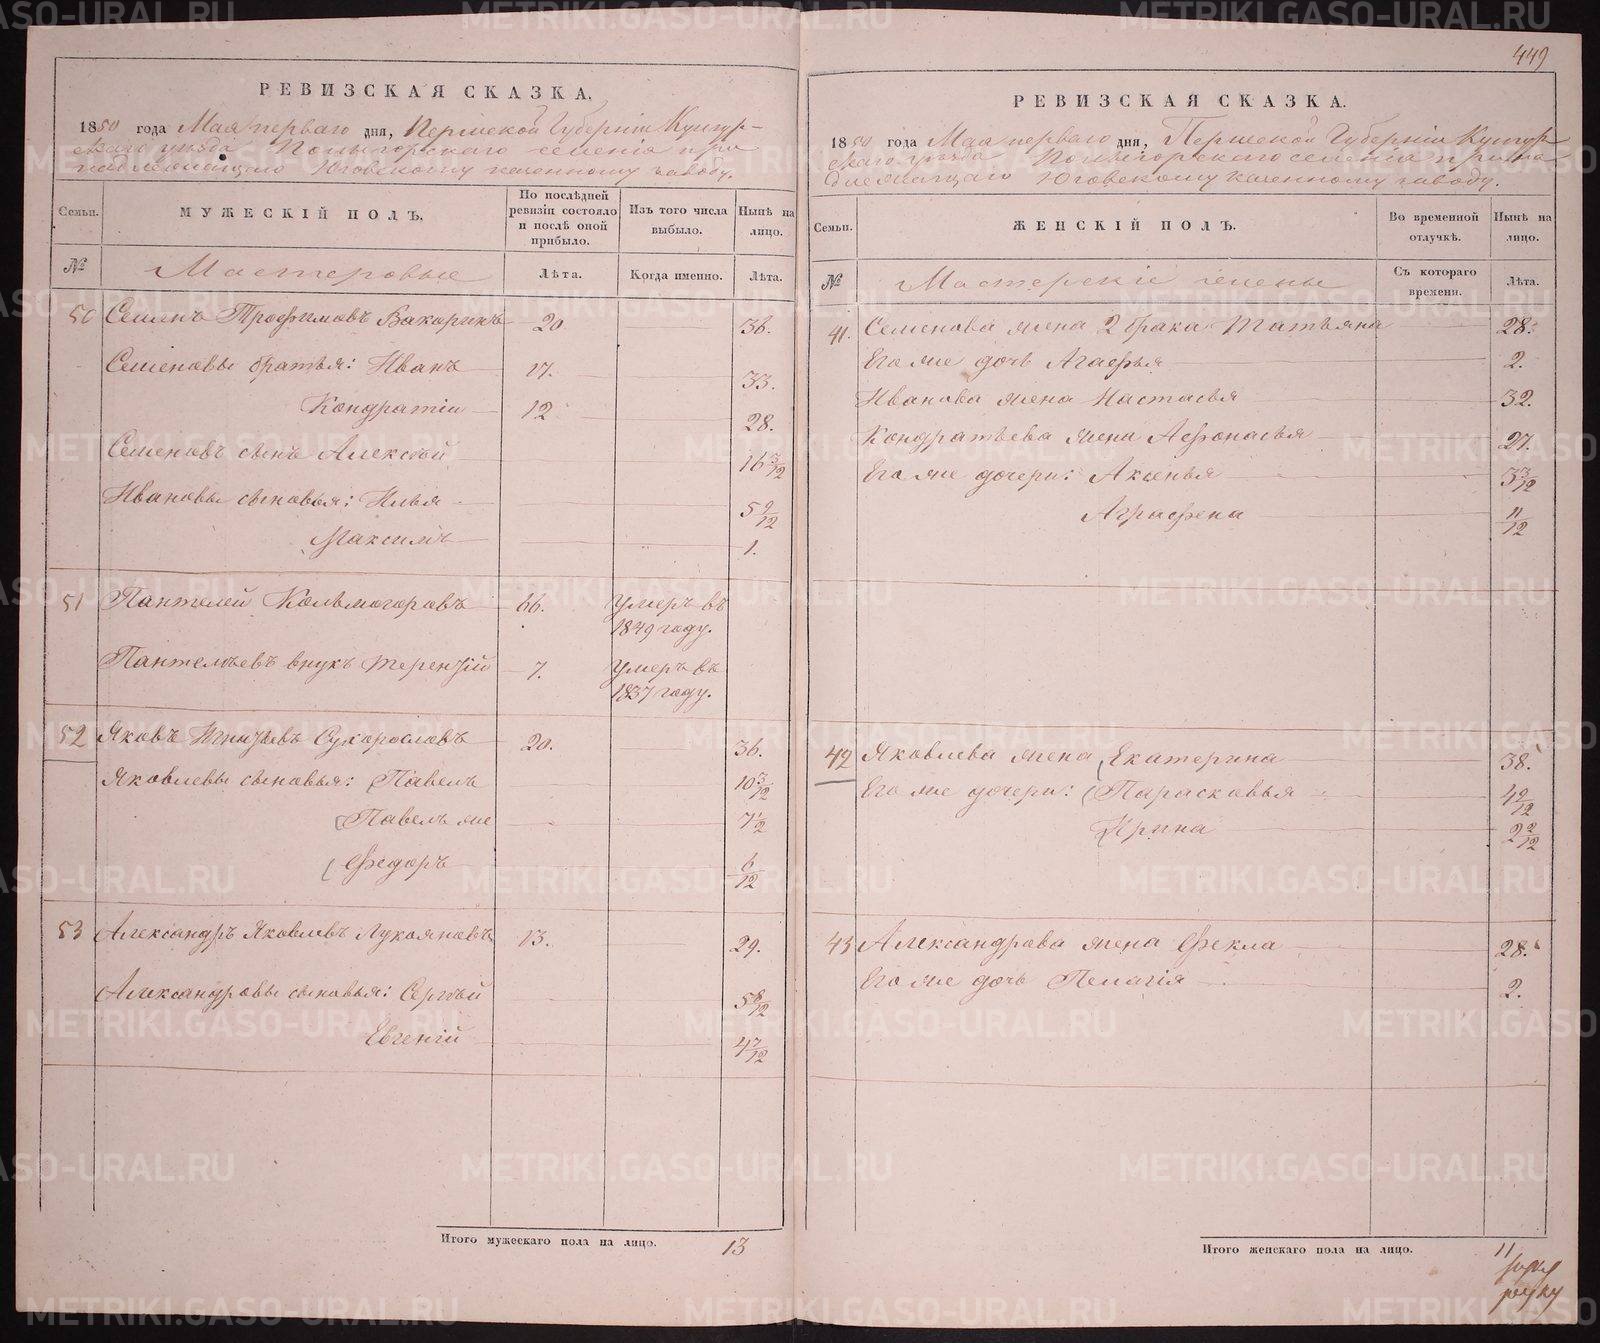 449
РЕВИЗСКАЯ СКАЗКА.
1850 года Мая перваго дня, Пермской Губерніи Кунгур-
скаго уѣзда Полыгорскаго селенія при
надлежащаго Юговскому казенному заводу.
Семьи.
МУЖЕСКІЙ ПОЛЪ.
По послѣдней ревизіи состояло и послѣ оной прибыло.
Изъ того числа выбыло.
Нынѣ на лицо.
№
Мастеровые
Лѣта.
Когда именно.
Лѣта.
50 Семенъ Трофимовъ Вакоринъ 20 36.
Семеновы братья: Иванъ 17. 33.
Кондратіи 12 28.
Семеновъ сынъ Алексѣй 16 3/12
Ивановы сыновья: Илья 5 9/12
Максимъ 1.
51 Пантелей Колмогоровъ 66. Умеръ въ
1849 году.
Пантелѣевъ внукъ Терентій 7. Умеръ въ
1837 году.
52 Яковъ Сухорословъ 20. 36.
Яковлевы сыновья: Павелъ 10 3/12
Павелъ же 7 1/2
Федоръ 6/12
53 Александръ Яковлевъ Лукояновъ 13. 29.
Александровы сыновья: Сергѣй 5 8/12
Евгеній 4 7/12
Итого мужескаго пола на лицо. 13
РЕВИЗСКАЯ СКАЗКА.
1850 года Мая перваго дня, Пермской Губерніи Кунгур-
скаго уѣзда Полыгорскаго селенія прина-
длежащаго Юговскому казенному заводу.
Семьи.
ЖЕНСКІЙ ПОЛЪ.
Во временной отлучкѣ.
Нынѣ на лицо.
№
Мастерскіе жены
Съ котораго времени.
Лѣта.
41. Семенова жена 2 брака Татьяна 28.
Его же дочь Агафья 2.
Иванова жена Настасья 32.
Кондратьева жена Афонасья 27.
Его же дочери: Аксинья 3 3/12
Аграфена 11/12
42 Яковлева жена Екатерина 38.
Его же дочери: Парасковья 4 9/12
Ирина 2 2/12
43 Александрова жена Фекла 28.
Его же дочь Пелагія 2.
Итого женскаго пола на лицо. 11
METRIKI.GASO-URAL.RU